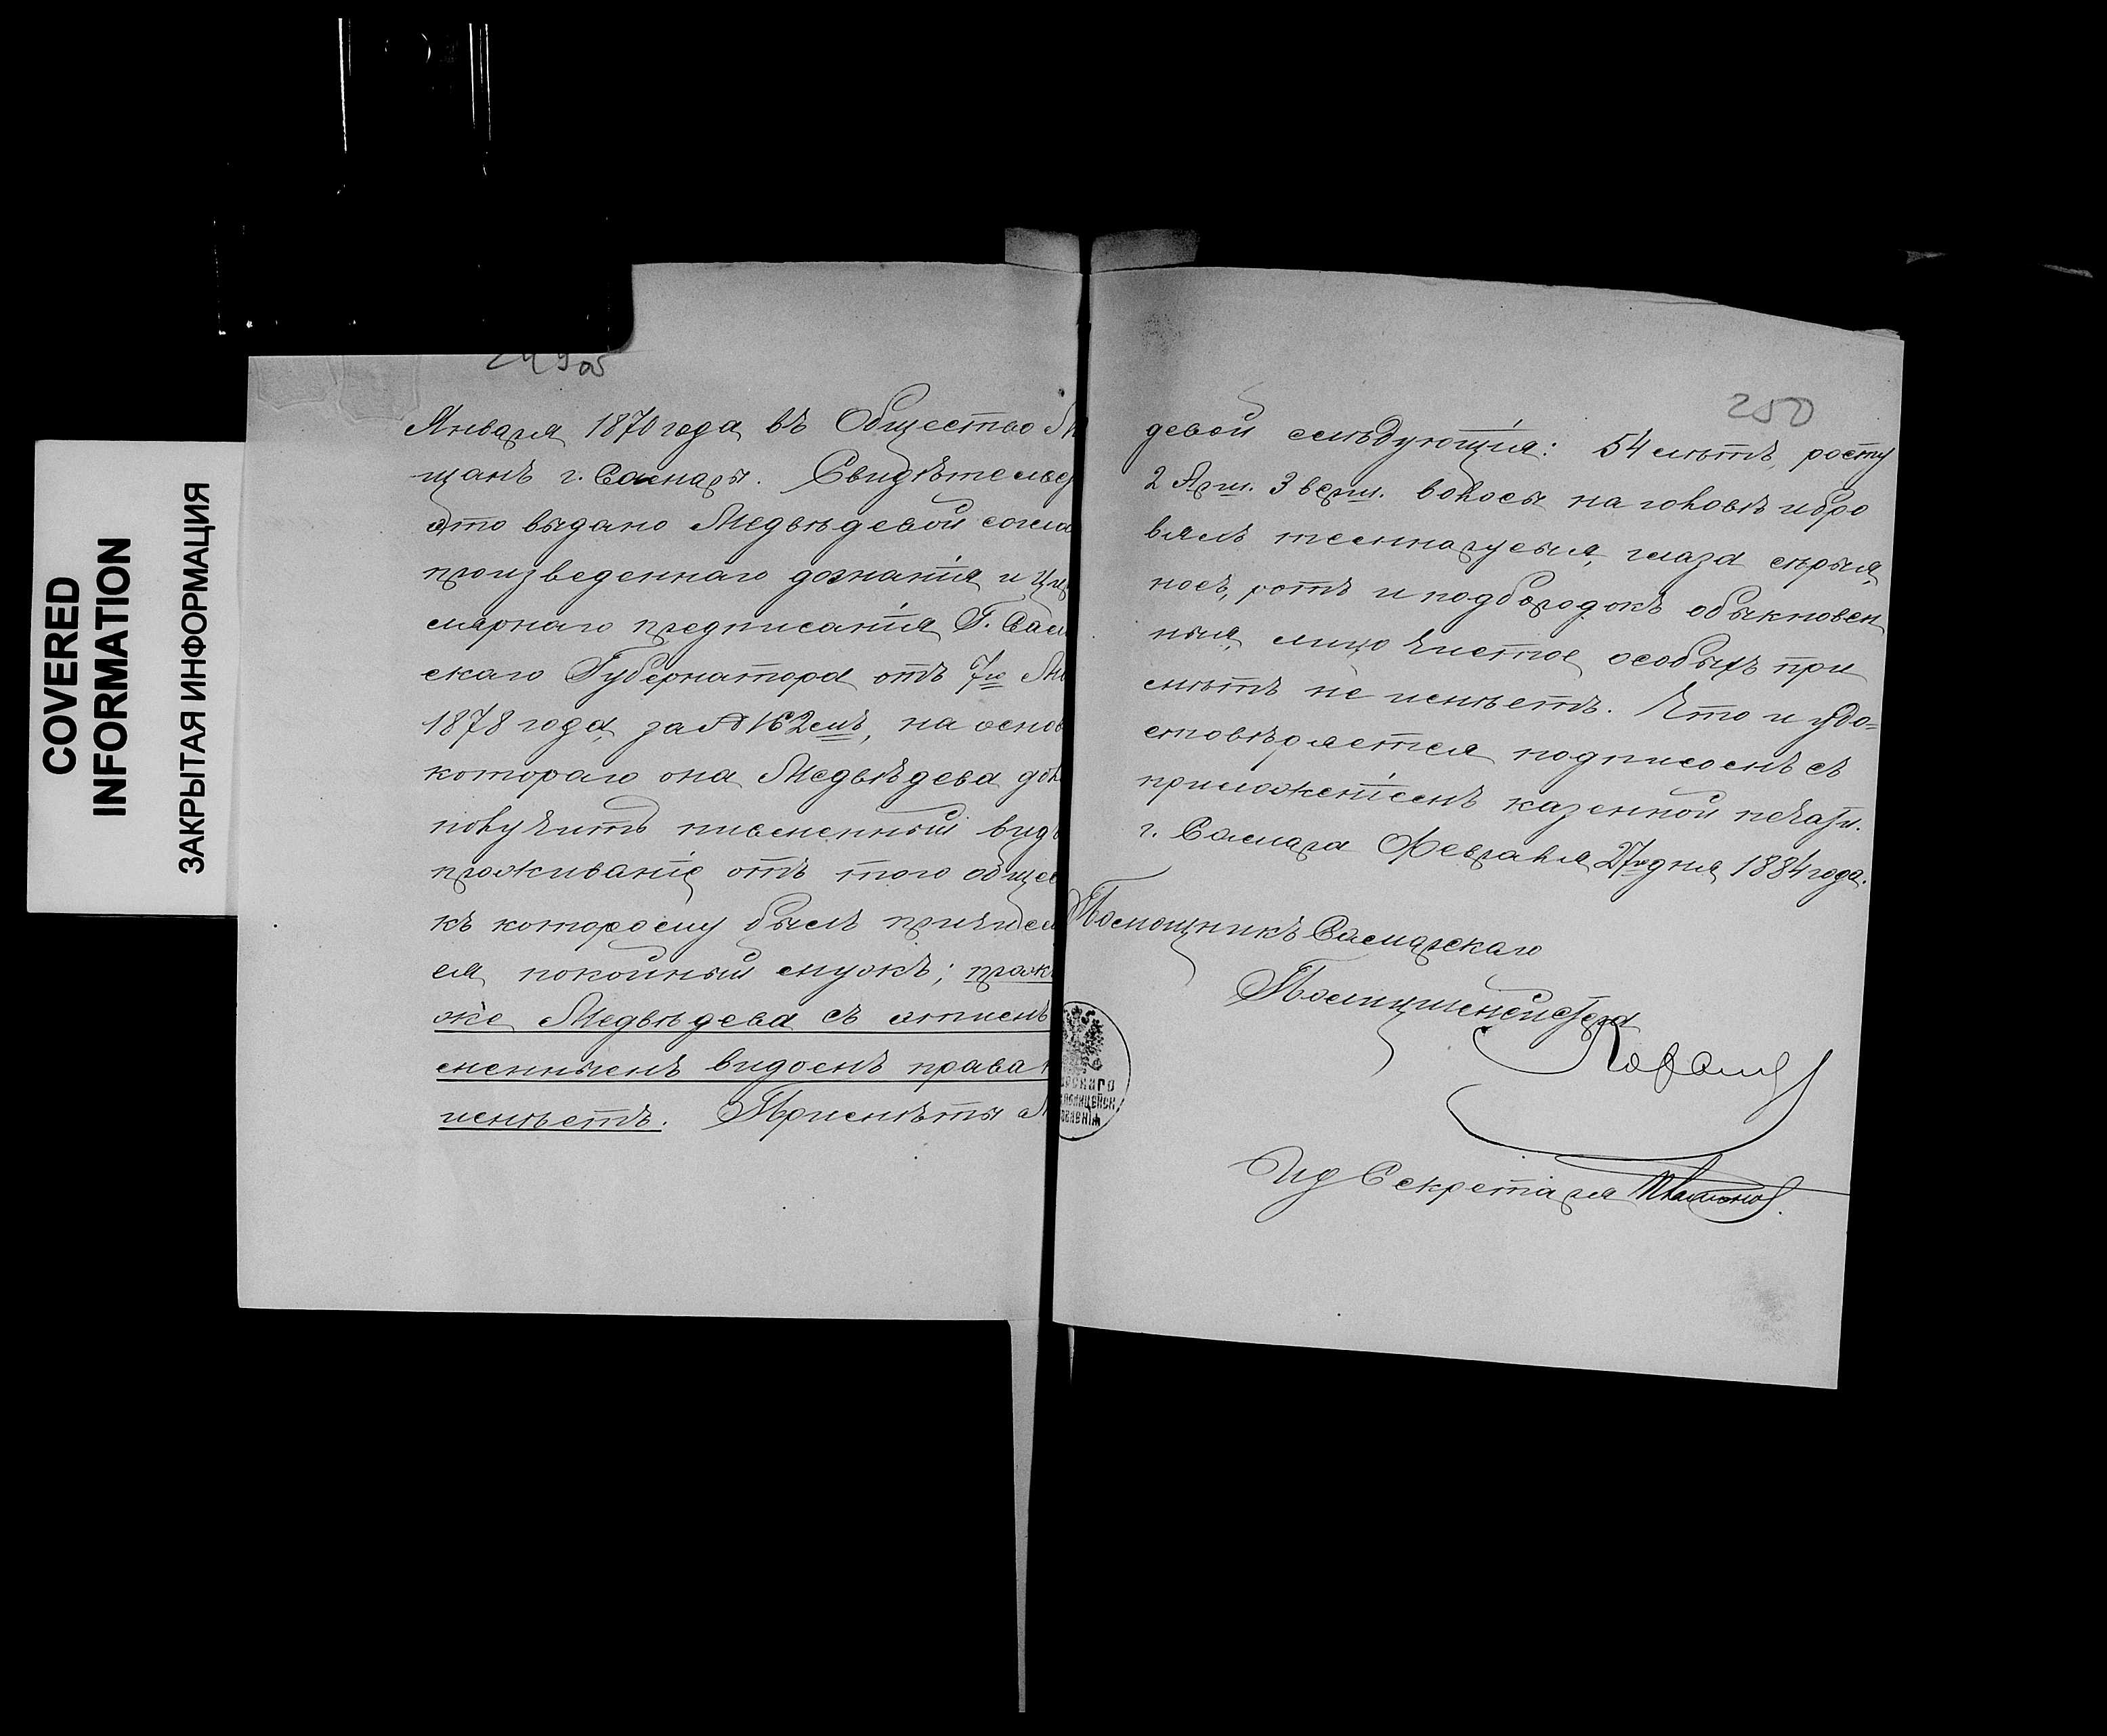 COVERED
INFORMATION
ЗАКРЫТАЯ ИНФОРМАЦИЯ
Января 1870 года въ Общество М
щанъ г. Самары. Свидѣтельс
это выдано Медвѣдевой согла
произведеннаго дознанія и Цир
лярнаго предписанія Г. Сам
скаго Губернатора отъ 7го Ян
1878 года, за № 162мъ, на основ
котораго она Медвѣдева дол
получить письменный видъ
проживаніе отъ того общес
къ которому былъ причисл
ея покойный мужъ; прож
же Медвѣдева съ этимъ
меннымъ видомъ права н
имѣетъ. Примѣты М
250
девой слѣдующія: 54 лѣтъ, росту
2 Арш. 3 верш. волосы на головѣ и бро
вяхъ темнорусыя, глаза сѣрыя,
носъ, ротъ и подбородокъ обыкновен
ныя, лицо чистое, особыхъ при
мѣтъ не имѣетъ. Что и удо=
стовѣряется подписомъ съ
приложеніемъ казенной печати.
г. Самара Февраля 27го дня 1884 года.
Помощникъ Самарскаго
Полицмейстера
рскаго
полицейск.
авленія
Ид Секретаря